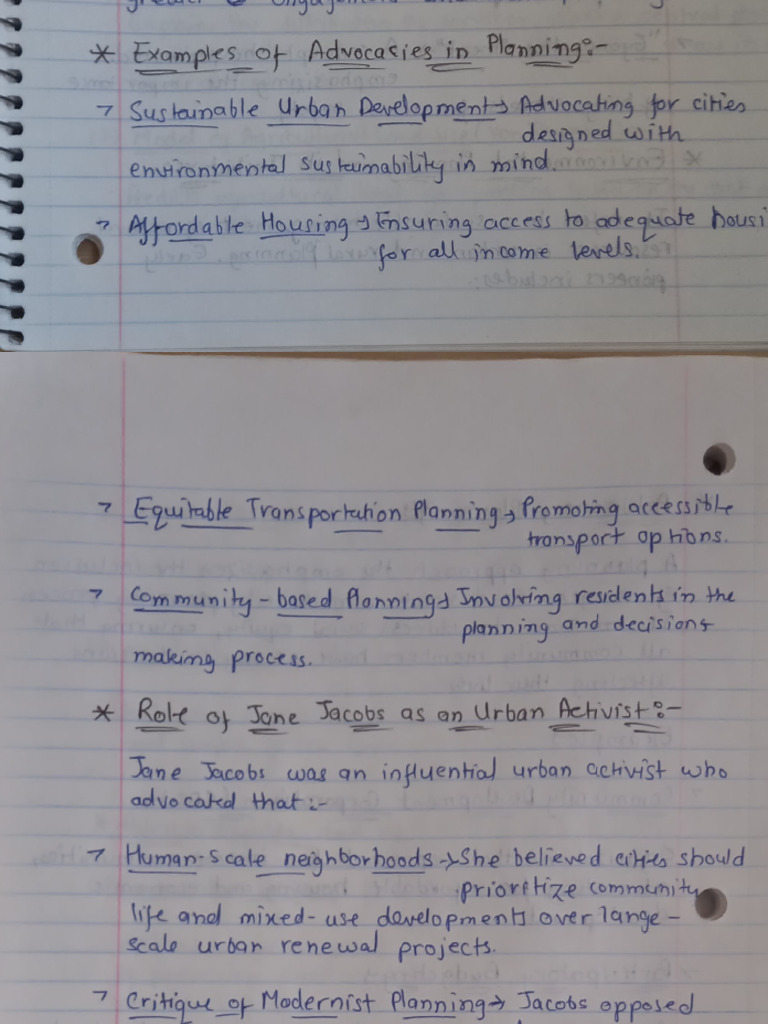 * Examples of Advocacies in Planning:-
→ Sustainable Urban Development → Advocating for cities
designed with
environmental sustainability in mind.
→ Affordable Housing → Ensuring access to adequate housi
for all income levels.
→ Equitable Transportation Planning → Promoting accessible
transport options.
→ Community-based Planning → Involving residents in the
planning and decisions
making process.
* Role of Jane Jacobs as an Urban Activist:-
Jane Jacobs was an influential urban activist who
advocated that :-
→ Human-scale neighborhoods → She believed cities should
prioritize community
life and mixed-use developments over large-
scale urban renewal projects.
→ Critique of Modernist Planning → Jacobs opposed